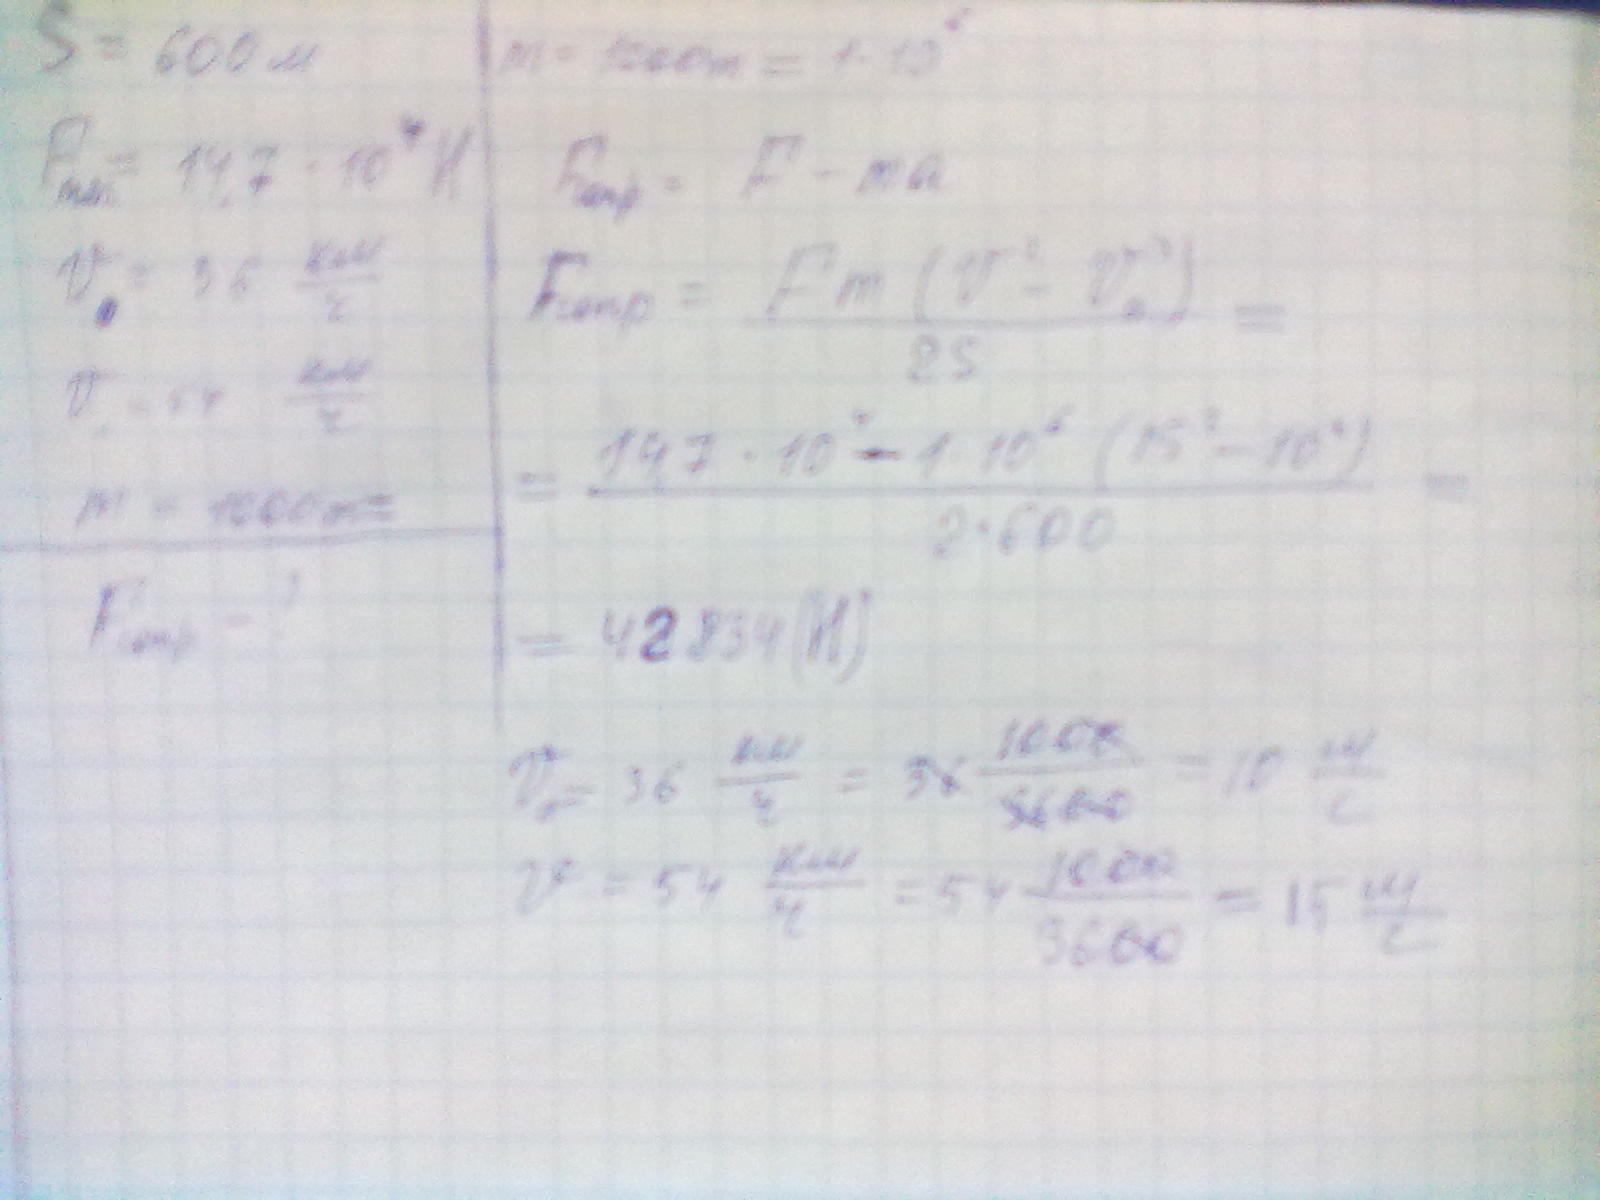 S = 600 м
Fтяг = 14,7 · 10⁴ Н
v₀ = 36 км/ч
v = 54 км/ч
m = 1000т =
Fсопр - ?
m = 1000т = 1 · 10⁶
Fсопр = F - ma
Fсопр = Fm (v² - v₀²) / 2S =
= 14,7 · 10⁴ - 1 · 10⁶ (15² - 10²) / 2 · 600 =
= 42834 (Н)
v₀ = 36 км/ч = 36 1000/3600 = 10 м/с
v = 54 км/ч = 54 1000/3600 = 15 м/с